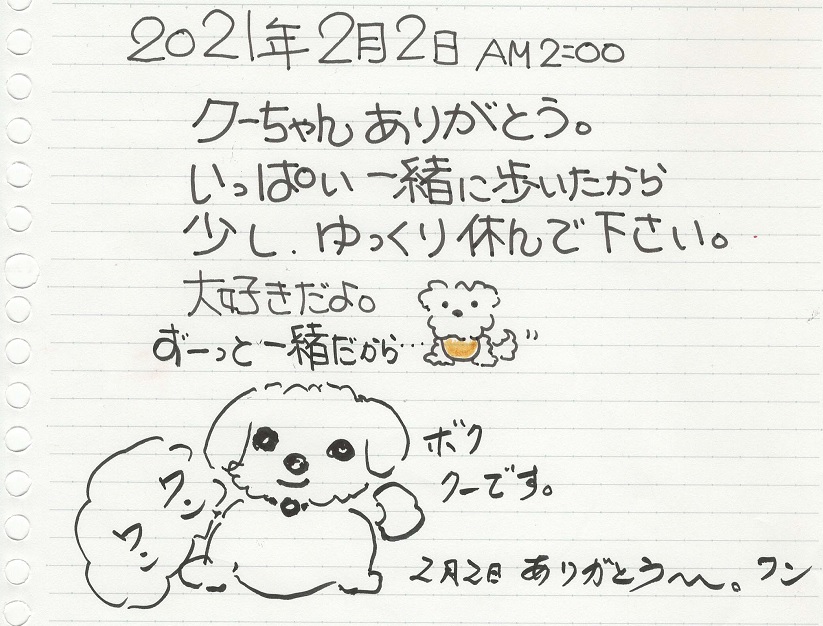 2021年2月2日 AM2:00
クーちゃん ありがとう。
いっぱい一緒に歩いたから
少し、ゆっくり休んで下さい。
大好きだよ。
ずーっと一緒だから…
ボク
クーです。
ワン
ワン
2月2日 ありがとう〜〜。ワン